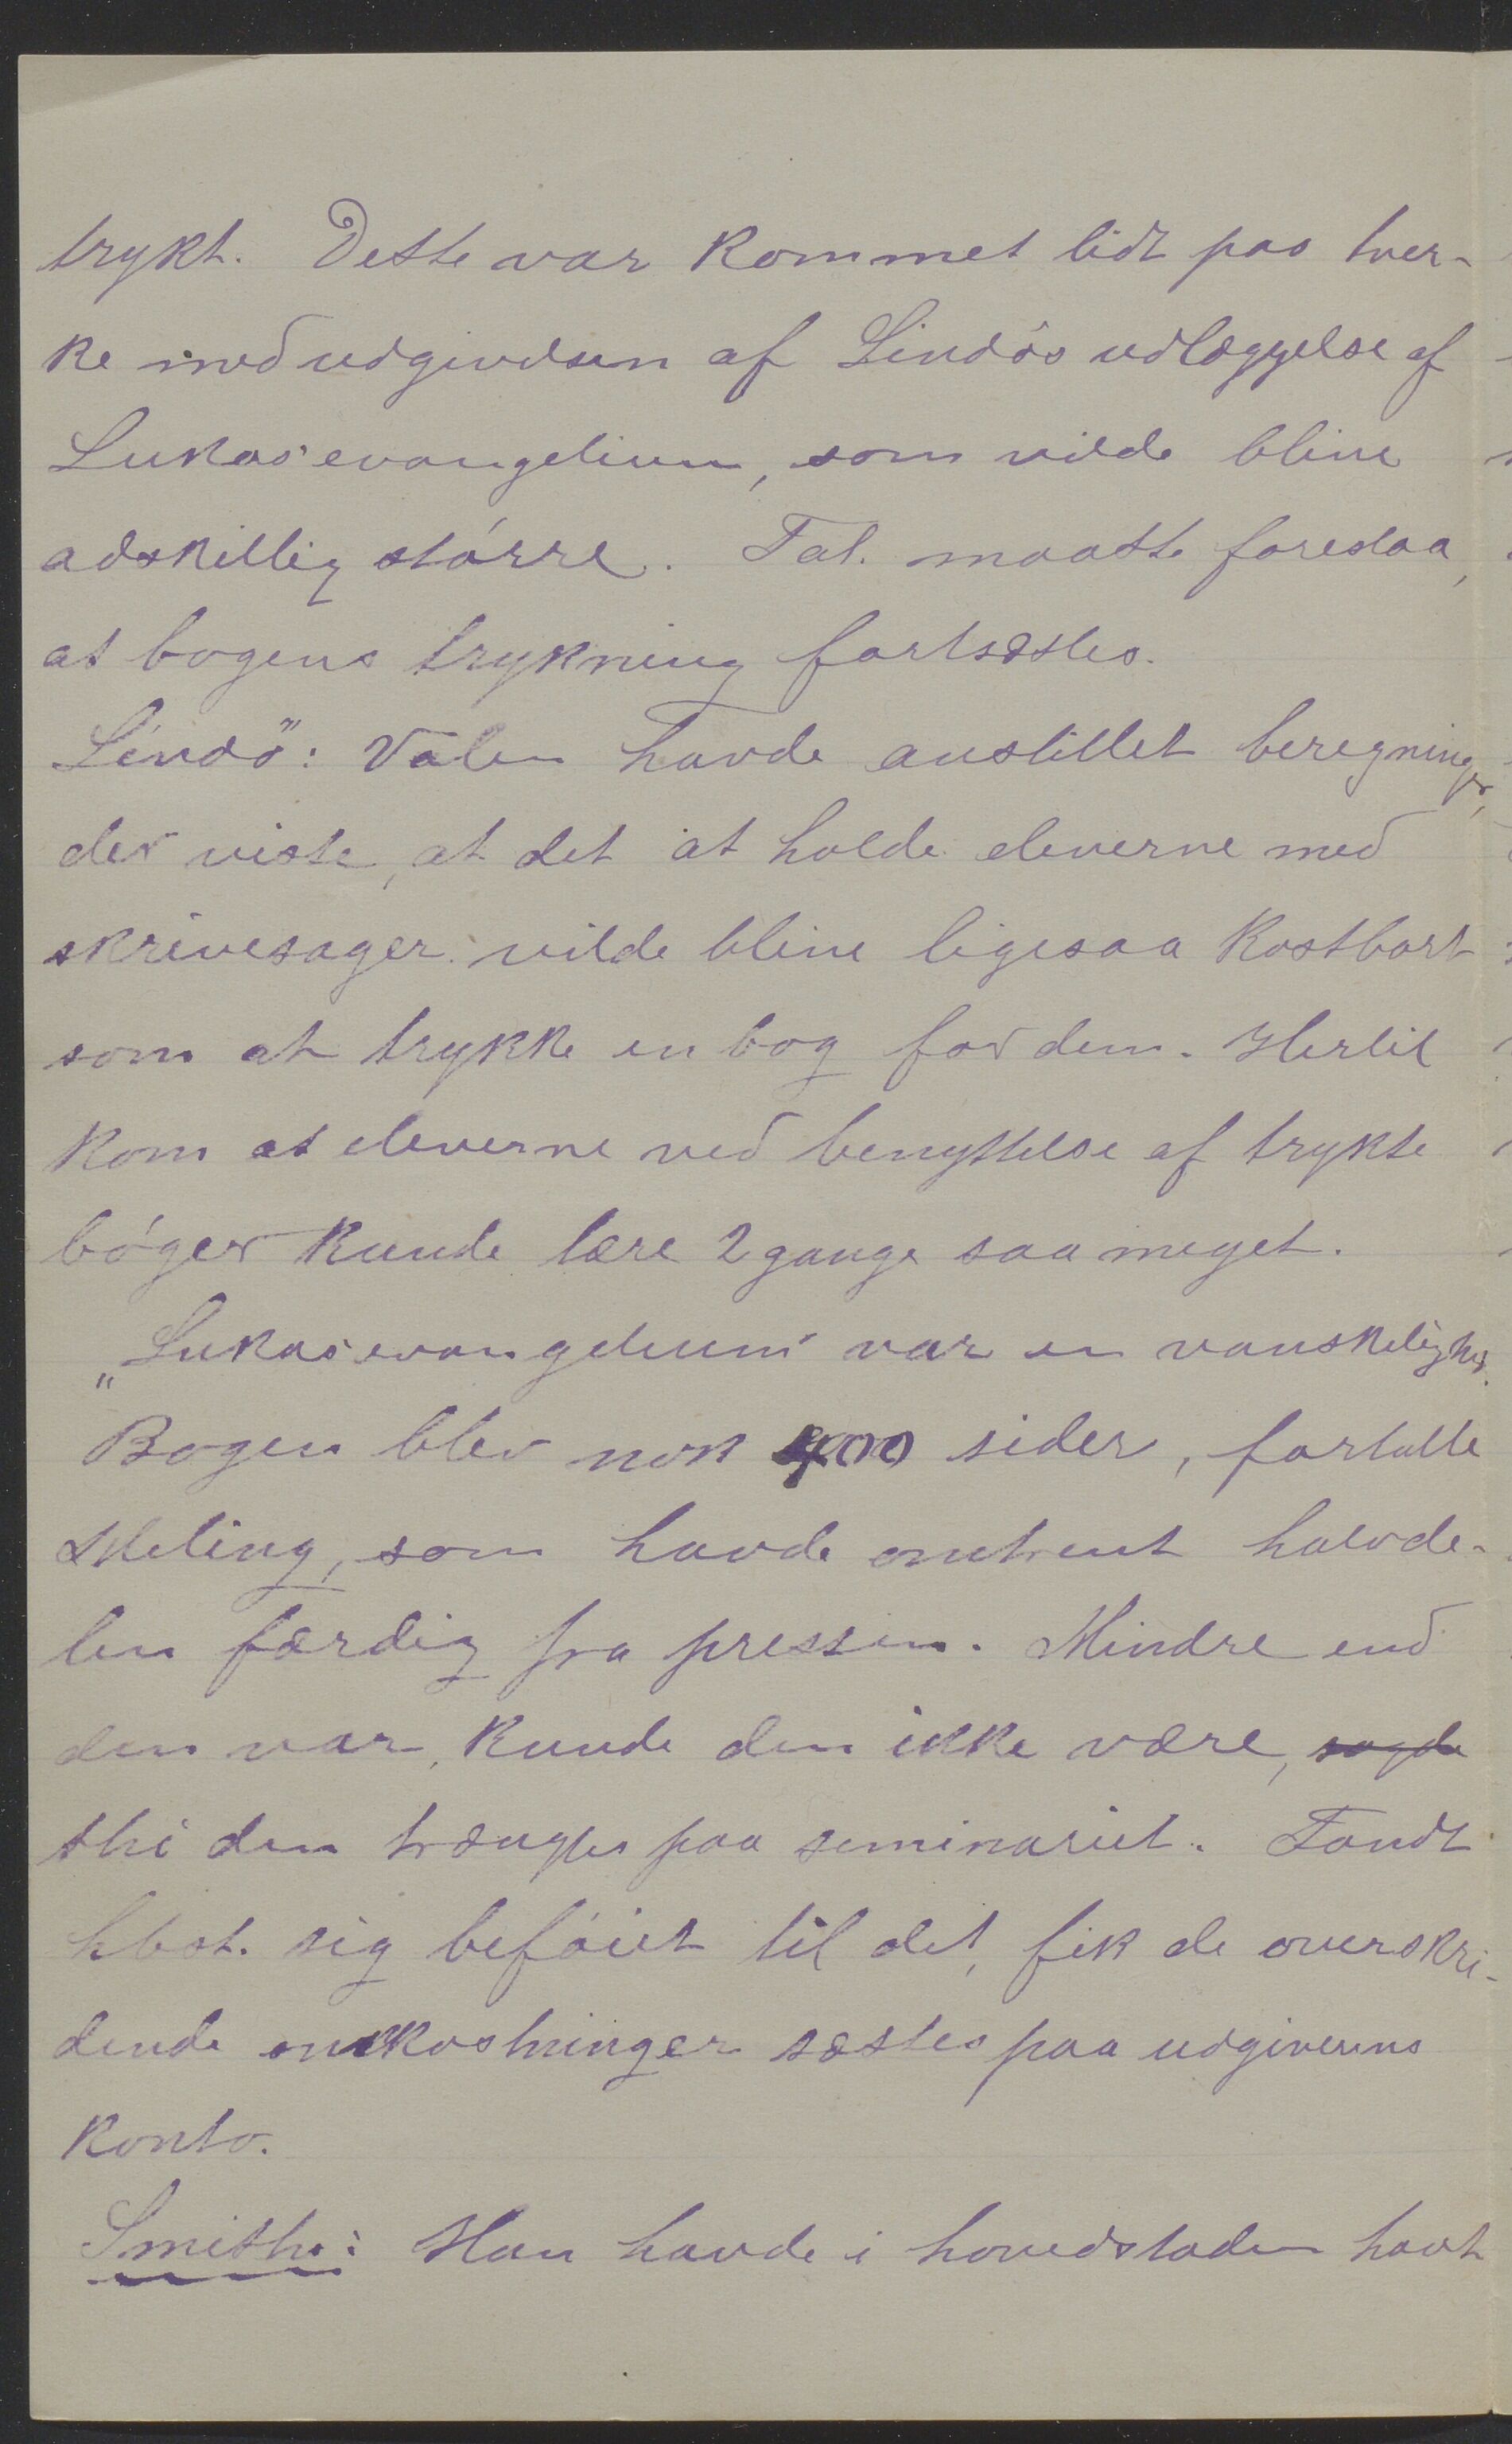 trykt. Dette var kommet lidt paa tver-
ke med udgivelsen af Lindös udlæggelse af
Lukasevangelium, som vilde blive
adskillig større. Tal. maatte foreslaa,
at bogens trykning fortsættes.
Lindö: Valen havde anstillet beregninger,
der viste, at det at holde eleverne med
skrivesager vilde blive ligesaa kostbart
som at trykke en bog for dem. Hertil
kom at eleverne ved benyttelse af trykte
bøger kunde lære 2 gange saa meget.
"Lukasevangelium" var en vanskelighed.
Bogen blev nok 400 sider, fortalte
som havde omtrent halvde-
len færdig fra pressen. Mindre end
den var, kunde den ikke være, sagde
thi den trænges paa seminariet. Fandt
hbst. sig beføiet til det, fik de overskri-
dende omkostninger sættes paa udgiverens
konto.
Smith: Han havde i hovedstaden havt